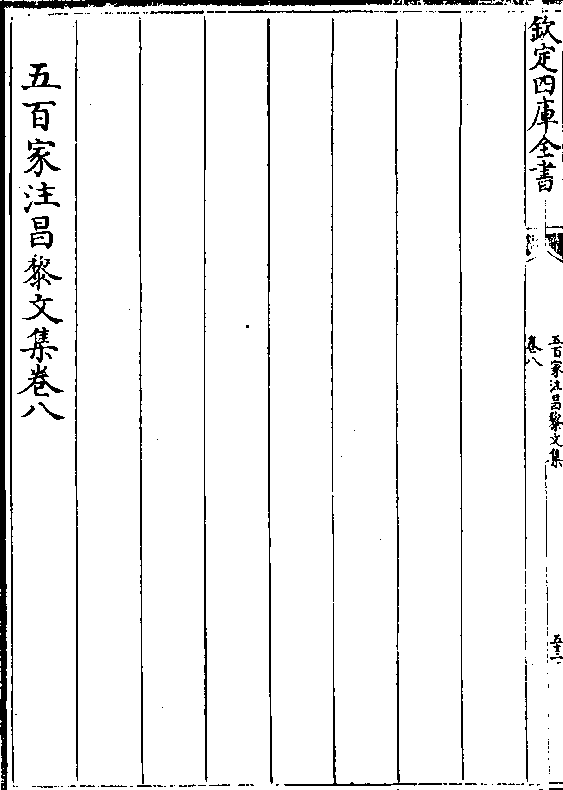 欽定四庫全書
五百家注昌黎文集
卷八
五百家注昌黎文集卷八